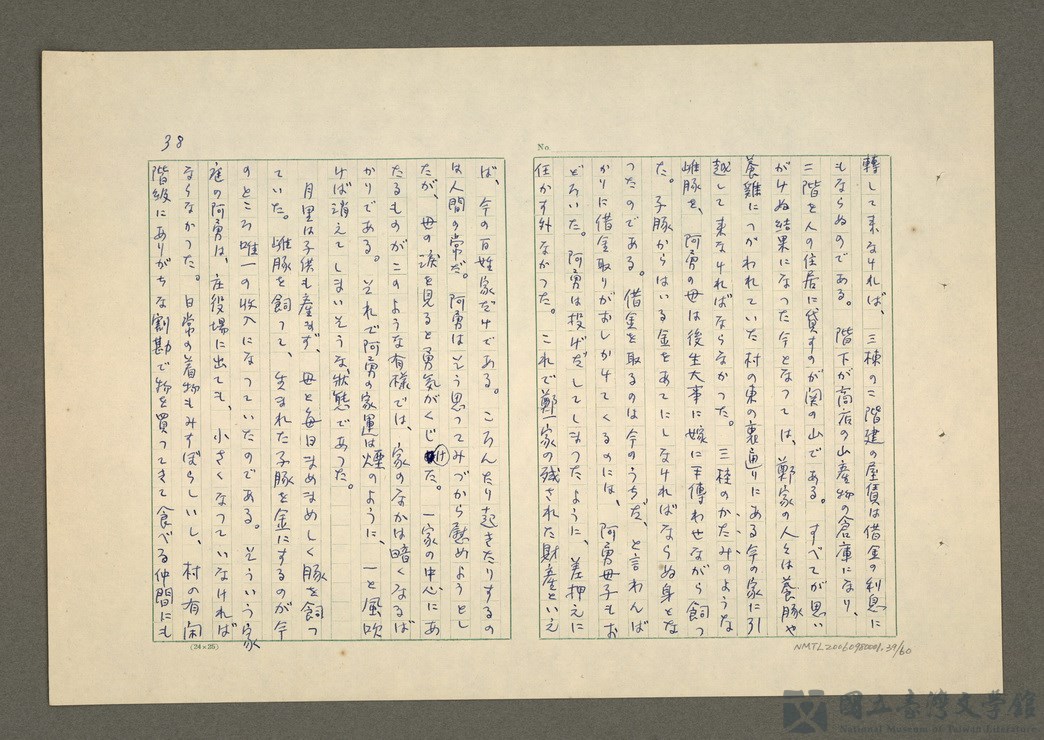 No.
轉して来なければ、三棟の二階建の屋賃は借金の利息に
もならぬのである。階下が商店の山産物の倉庫になり、
二階を人の住居に貸すのが関の山である。すべてが思い
がけぬ結果になった今となっては、鄭家の人々は養豚や
養雞につかわれていた村の東の裏通りにある今の家に引
越して来なければならなかった。三桂のかたみのような
雌豚を、阿勇の母は後生大事に嫁に手傳わせながら飼っ
た。子豚からはいる金をあてにしなければならぬ身とな
ったのである。借金を取るのは今のうちだ、と言わんば
かりに借金取りがおしかけてくるのには、阿勇母子もお
どろいた。阿勇は投げだしてしまったように、差押えに
任かす外なかった。これで鄭一家の残された財産といえ
ば、今の百姓家だけである。ころんだり起きたりするの
は人間の常だ。阿勇はそう思ってみづから慰めようとし
たが、母の涙を見ると勇気がくじけた。一家の中心にあ
たるものがこのような有様では、家のなかは暗くなるば
かりである。それで阿勇の家運は煙のように、一と風吹
けば消えてしまいそうな状態であった。
月里は子供も産まず、母と毎日まめまめしく豚を飼っ
ていた。雌豚を飼って、生まれた子豚を金にするのが今
のところ唯一の收入になっていたのである。そういう家
庭の阿勇は、庄役場に出ても、小さくなっていなければ
ならなかった。日常の着物もみすぼらしいし、村の有閑
階級にありがちな割勘で物を買ってきて食べる仲間にも
38
(24×25)
NMTL20060980001.39/60
國立臺灣文學館
National Museum of Taiwan Literature